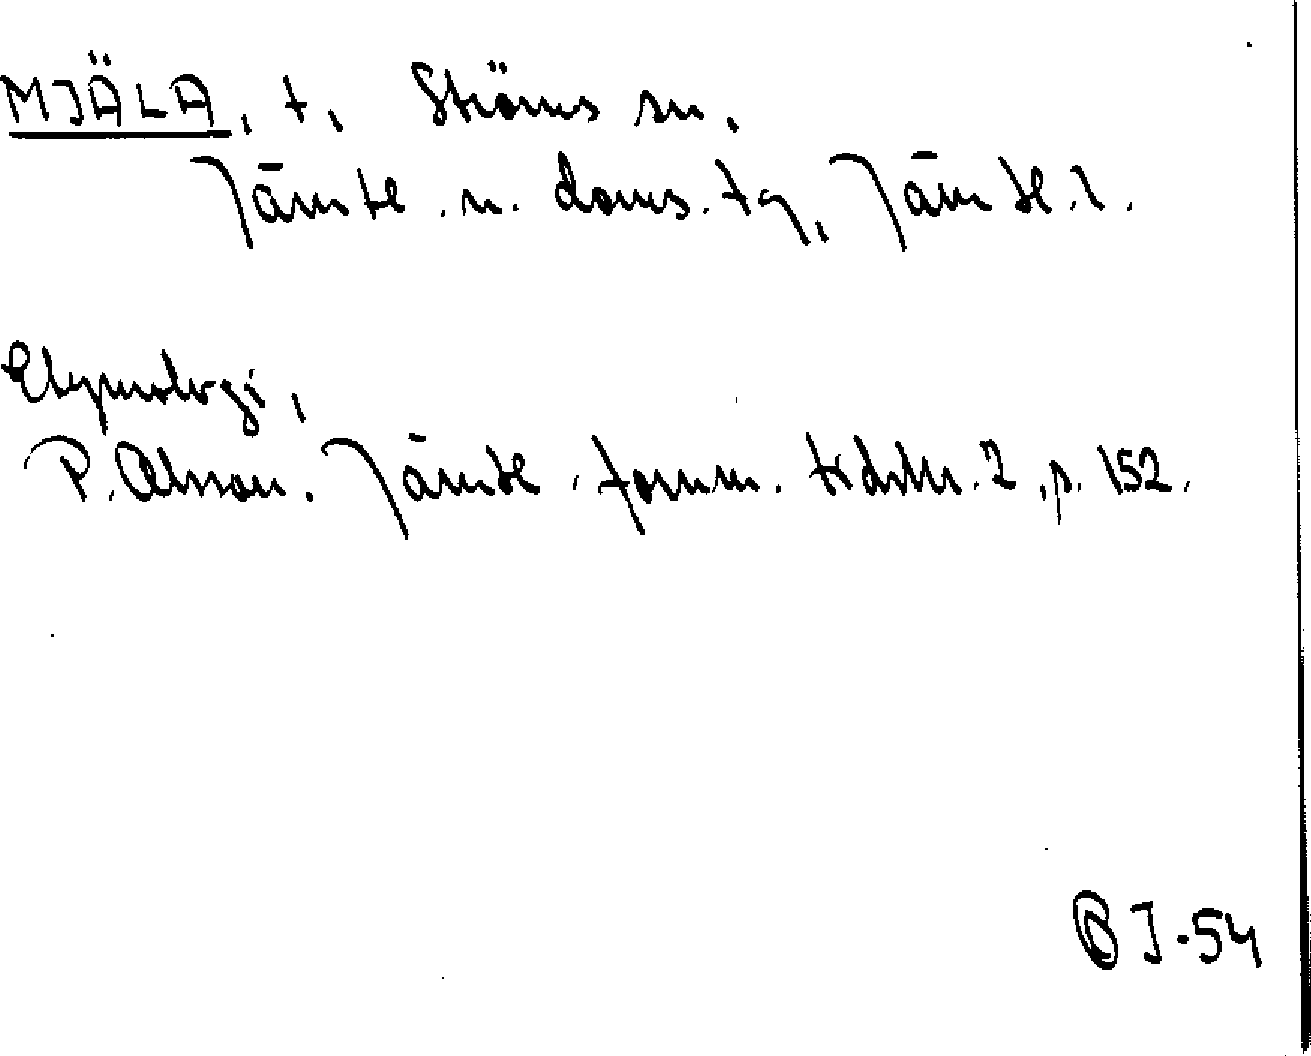 MJÄLA, t, Ströms sn.
Jämtl. n. doms. tg, Jämtl. l.
Etymologi,
P. Olsson. Jämtl. fornm. tidskr. 2, p. 152.
BJ-54